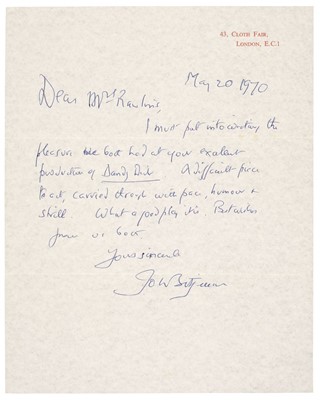 43, CLOTH FAIR,
LONDON, E.C.1
May 20 1970
Dear Mrs Rawlins
I must put into writing the
pleasure we both had at your excellent
production of Dandy Dick A difficult piece
to act, carried through with pace, humour +
skill What a good play it is Best wishes
from us both
Yours sincerely
John Betjeman